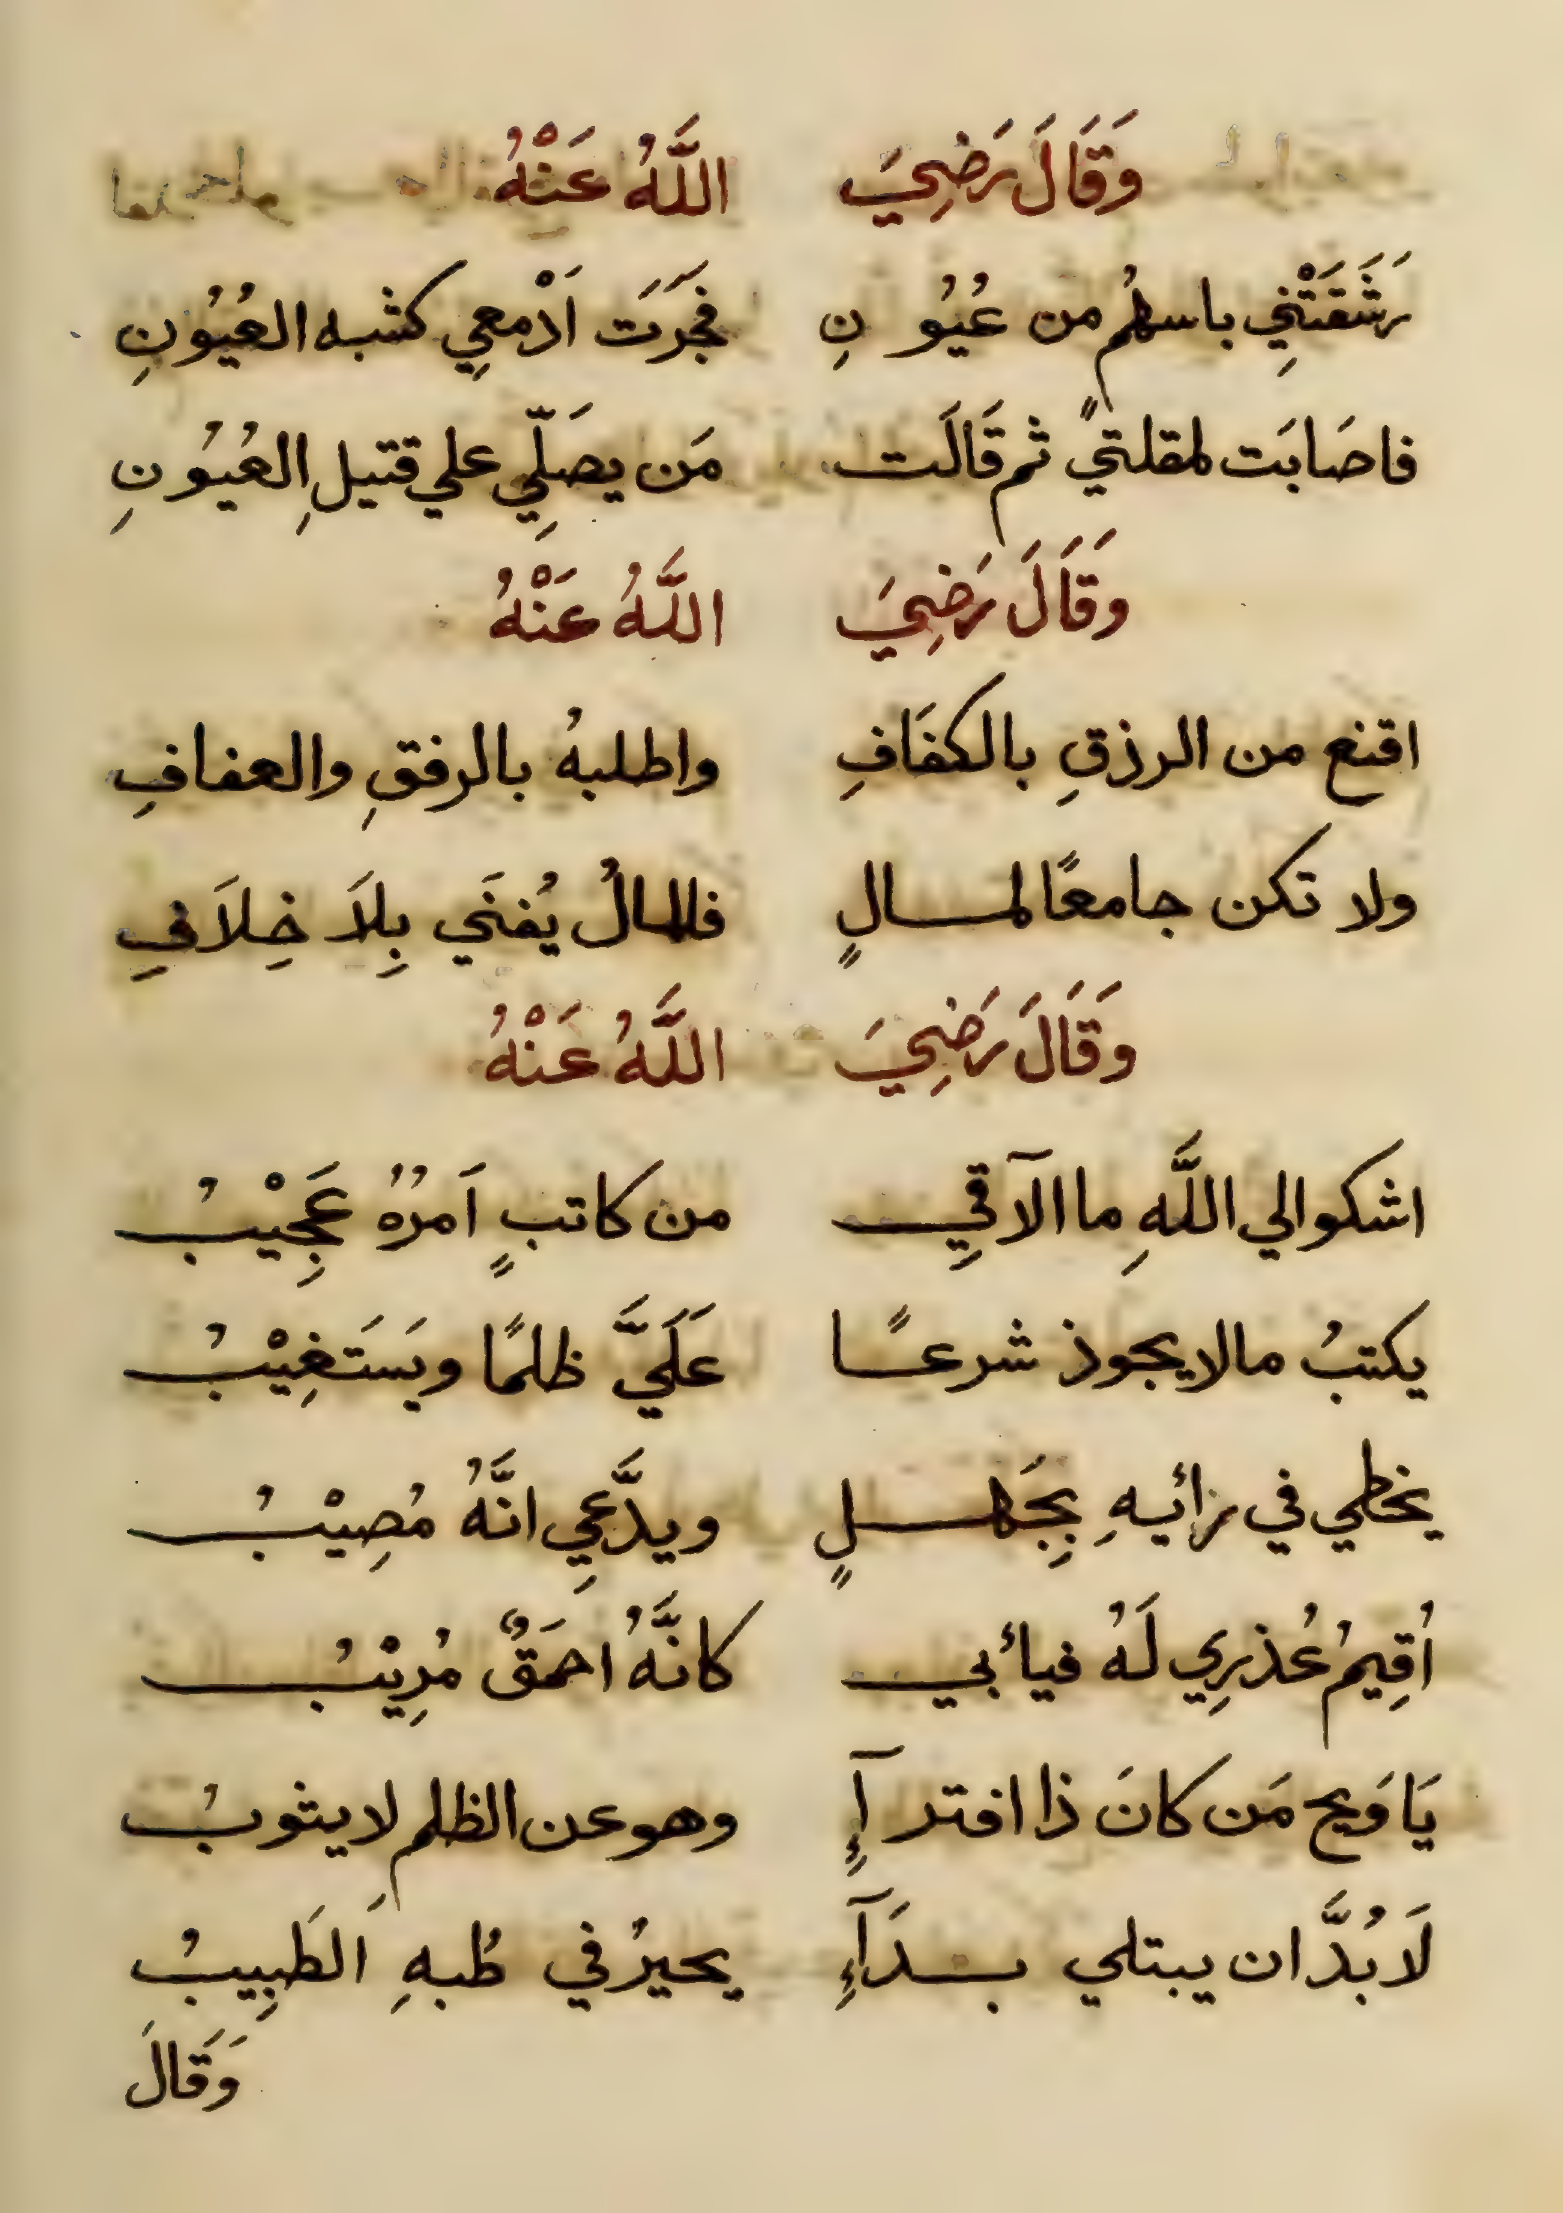 وَقَالَ رَضِيَ اللَّهُ عَنْهُ
رَشَقَتْنِي باسهُم من عُيُونِ فجَرَت اَدْمعِي كشبه العُيُونِ
فاصَابَت لمقلتيً ثم قَالَت مَن يصَلِّي علي قتيلِ العُيُونِ
وَقَالَ رَضِيَ اللَّهُ عَنْهُ
اقنع من الرزقِ بالكفَافِ واطلبهُ بالرفقِ والعفافِ
ولا تكن جامعًا لمالٍ فالمالُ يُفنَي بِلاَ خِلاَفِ
وَقَالَ رَضِيَ اللَّهُ عَنْهُ
اشكوالي اللَّهِ ما الآقِي من كاتبٍ اَمرُهُ عَجِيْبُ
يكتبُ مالا يجوذ شرعًا عَلَيَّ ظلمًا ويَستَغِيْبُ
يخطي في رائيهِ بِجَهلٍ ويدَّعِي انَّهُ مُصِيْبُ
اُقِيمُ عُذرِي لَهُ فيأبي كانَّهُ احمَقٌ مُرِيْبُ
يَا وَيح مَن كانَ ذا افترآءِ وهو عن الظلمِ لا يثوبُ
لَا بُدَّ ان يبتلي بدَآءِ يحيرُ في طُبهِ الَطَبِيبُ
وَقَالَ